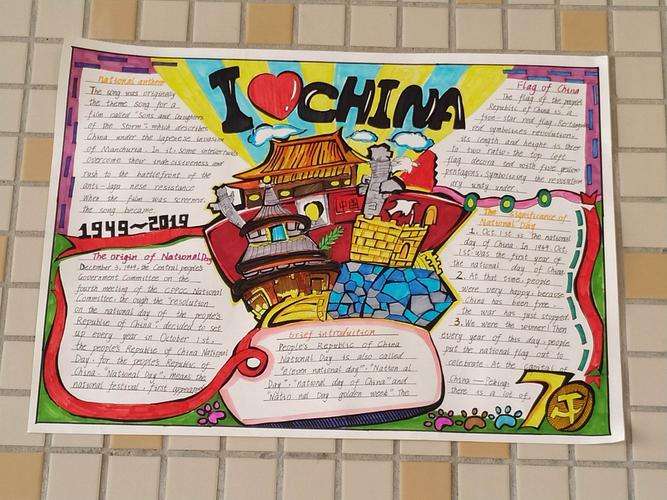 I ❤ CHINA
National anthem
The song was originally
the theme song for a
film called "Sons and laughters
of the Storm" which describes
China under the Japanese invasion
of Manchuria. In it, some intellectuals
overcome their indecisiveness and
rush to the battlefront of the
anti-Japanese resistance
When the film was screened.
the song became
1949~2019
The origin of National Day
December 3, 1949, the Central people's
Government Committee on the
fourth meeting of the CPPCC National
Committee through the "resolution
on the national day of the people's
Republic of China," decided to set
up every year in October 1st,
the people's Republic of China National
Day, for the people's Republic of
China. "National Day" means the
national festival, first appeared
中国
brief introduction
People's Republic of China
National Day is also called
"eleven national day" "National
Day", "national day of China" and
"National Day golden week". The
Flag of China
The flag of the people
Republic of China is a
five-star red flag. Rectangular
red symbolizes revolution,
its length and height is three
to two. The top left
flag decorated with five yellow
pentagons, symbolizing the revolution
ary unity under
The significance of
National Day
1. Oct. 1st is the national
day of China. In 1949. Oct.
1st was the first year of
the national day of China
2. At that time, people
were very happy. because
China has been free
the war has just stopped
3. We were the winner! Then
every year of this day people
put the national flag out to
celebrate. At the capital of
China — Peking.
there is a lot of
70